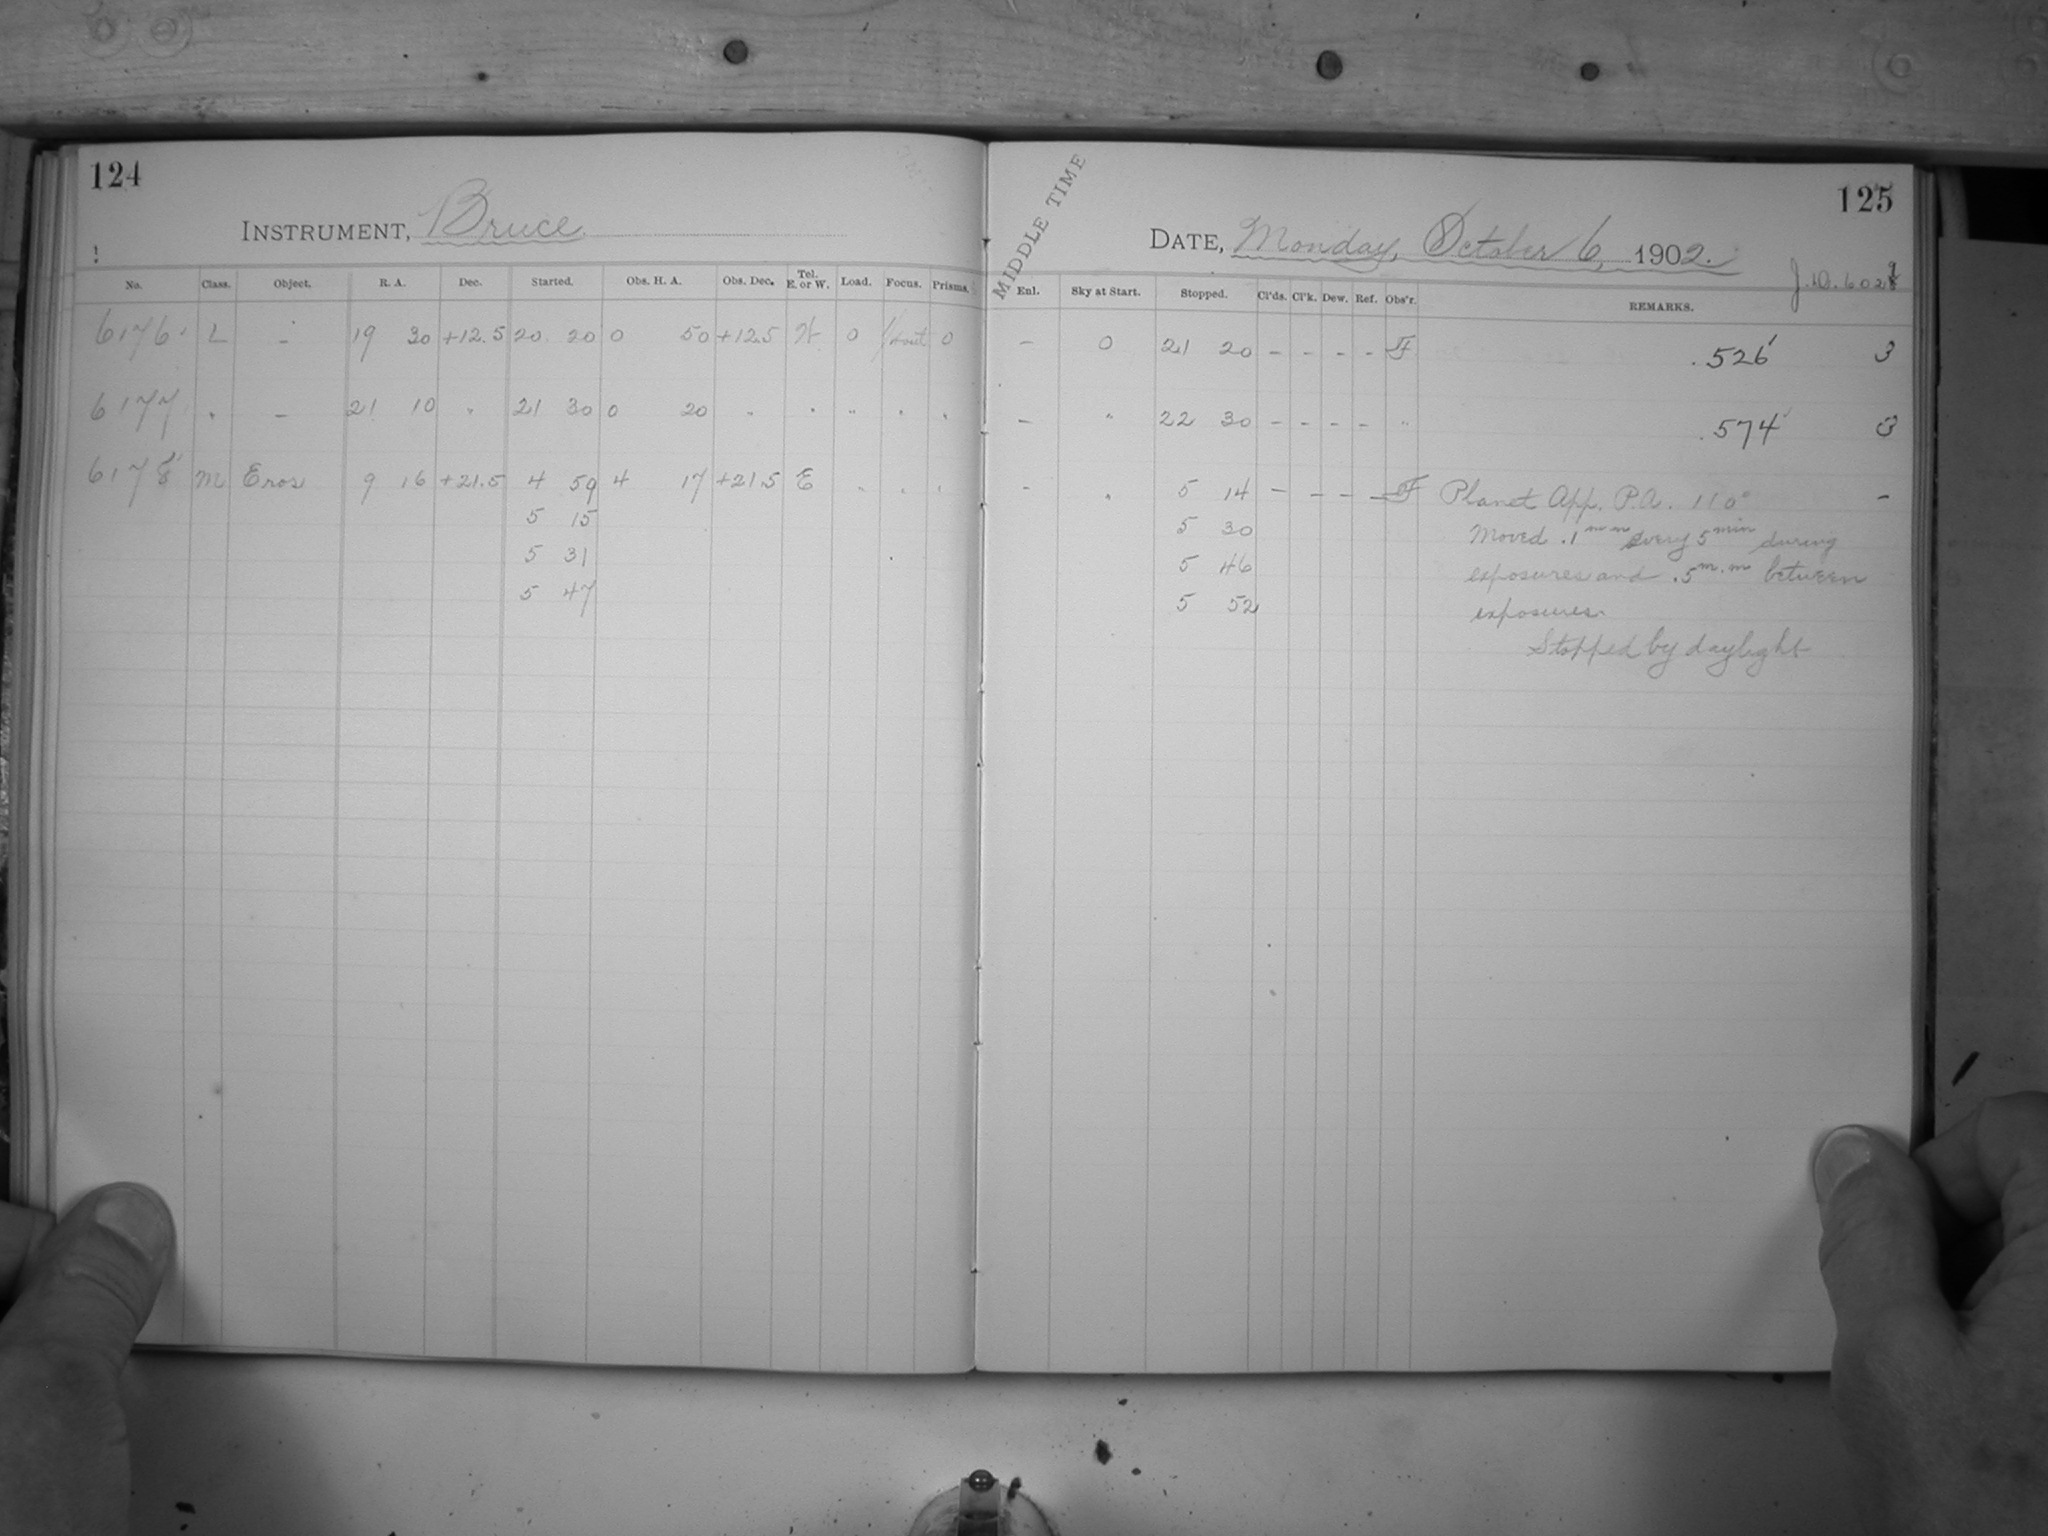 124
INSTRUMENT, Bruce
No. Class. Object. R. A. Dec. Started. Obs. H. A. Obs. Dec. Tel. E. or W. Load. Focus. Prisms.
6176 L - 19 30 +12.5 20 20 0 50 +12.5 W 0 0
6177 " - 21 10 " 21 30 0 20 " " " " "
6178 M Eros 9 16 +21.5 4 59 4 17 +21.5 E " " "
5 15
5 31
5 47
125
MIDDLE TIME
DATE, Monday, October 6, 1902.
J.D. 602
Enl. Sky at Start. Stopped. Cl'ds. Cl'k. Dew. Ref. Obs'r. REMARKS.
- 0 21 20 - - - - F .526 3
- " 22 30 - - - - " .574 3
- " 5 14 - - - - F Planet App. P.A. 110° -
5 30 Moved .1 mm every 5 min during
5 46 exposures and .5 m.m between
5 52 exposures.
Stopped by daylight